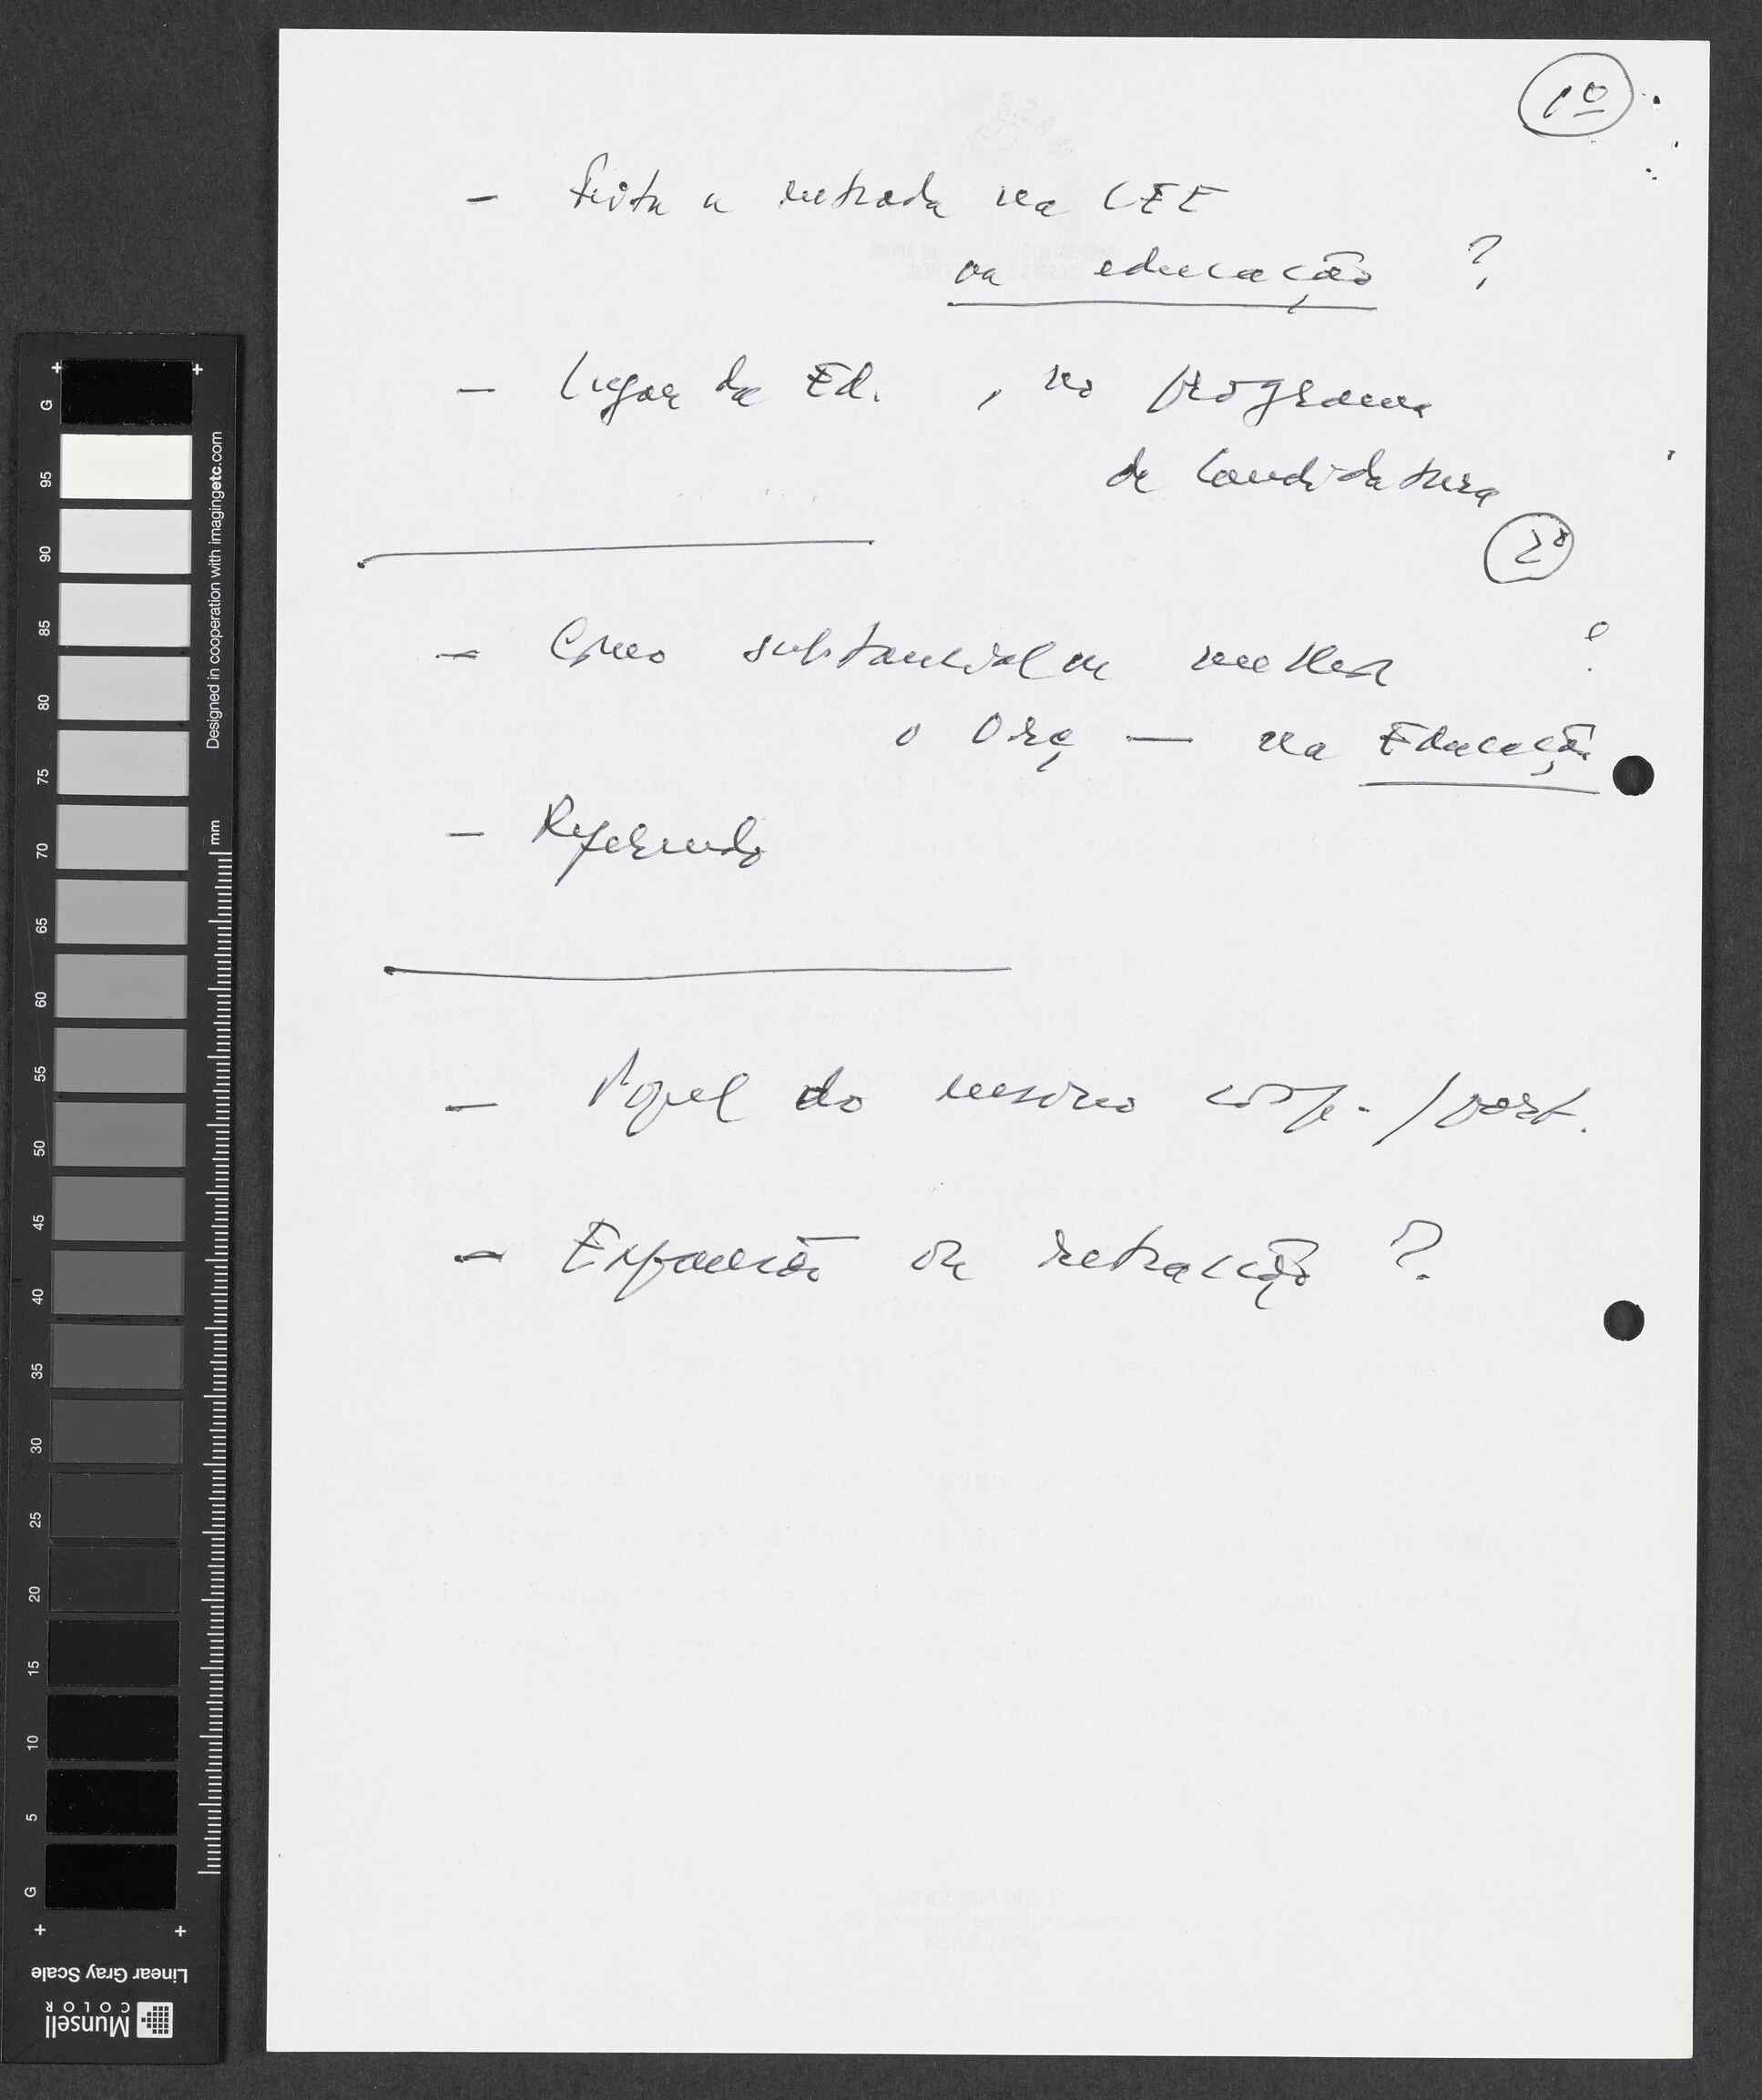 1º
- Feita a entrada na CEE
na educação ?
- Lugar da Ed. , no programa
de Candidatura
2º
- Como substancialm melhor ?
o Orç — na Educação
- Referendo
- Papel do ensino coop. / part.
- Expansão ou retracção ?
G
95
90
85
80
75
70
65
60
55
50
45
40
35
30
25
20
15
10
5
G
Designed in cooperation with imagingetc.com
mm
Linear Gray Scale
Munsell
COLOR